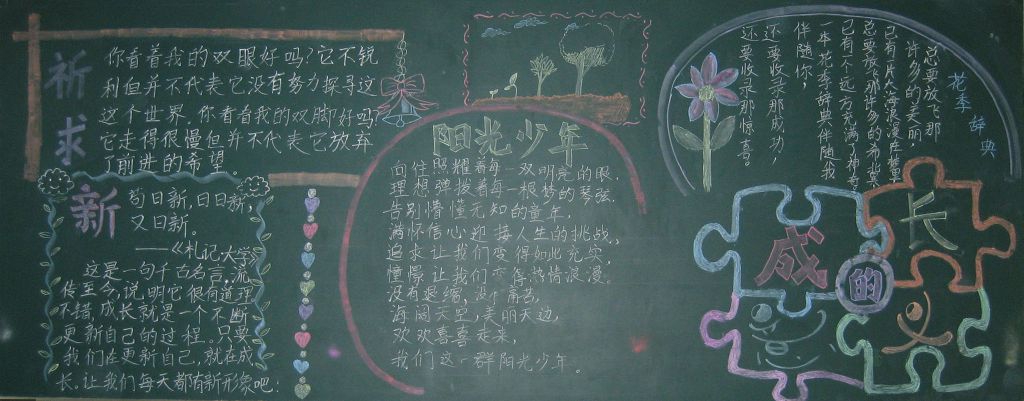 祈求
你看着我的双眼好吗?它不锐
利但并不代表它没有努力探寻这
这个世界.你看看我的双脚好吗?
它走得很慢但并不代表它放弃
了前进的希望。
新
苟日新,日日新,
又日新。
——《札记·大学》
这是一句千古名言,流
传至今,说明它很有道理
不错,成长就是一个不断
更新自己的过程。只要
我们在更新自己,就在成
长.让我们每天都有新形象吧!
阳光少年
向往照耀着每一双明亮的眼,
理想弹拨着每一根梦的琴弦.
告别懵懂无知的童年,
满怀信心迎接人生的挑战.
追求让我们变得如此充实,
憧憬让我们变得热情浪漫.
没有退缩,没有
海阔天空,美丽天边,
欢欢喜喜走来,
我们这一群阳光少年。
花季辞典
总要放飞那
许多的美丽,
已有一片大海浪漫
总要放飞那许多的
已有一个远方充满了神奇
一本花季辞典伴随我
伴随你,
还要收录那成功,
还要收录那惊喜。
成长的
义